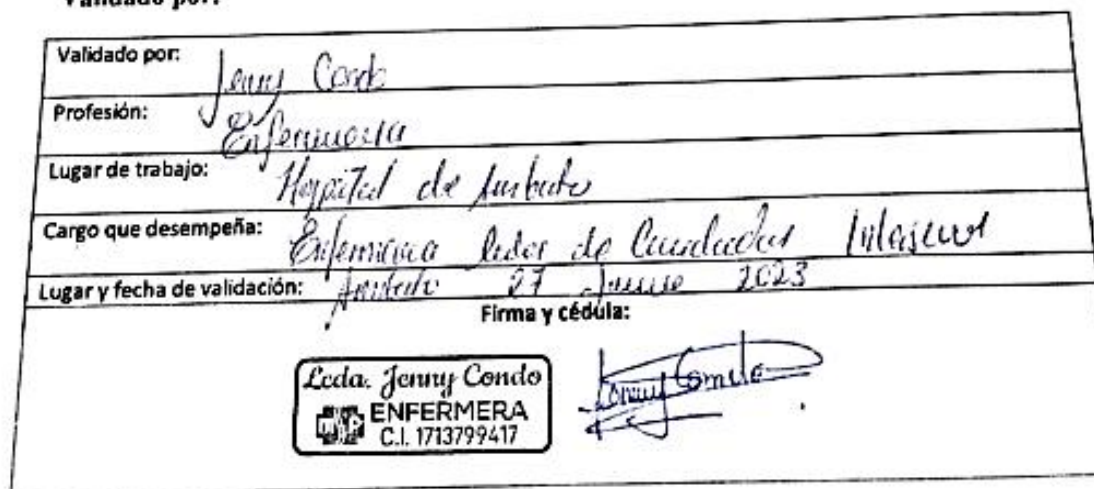 Validado por:
Validado por: Jenny Condo
Profesión: Enfermera
Lugar de trabajo: Hospital de Ambato
Cargo que desempeña: Enfermera lider de Cuidados
Lugar y fecha de validación: Ambato 27 Junio 2023
Firma y cédula:
Lcda. Jenny Condo
ENFERMERA
C.I. 1713799417
Jenny Condo